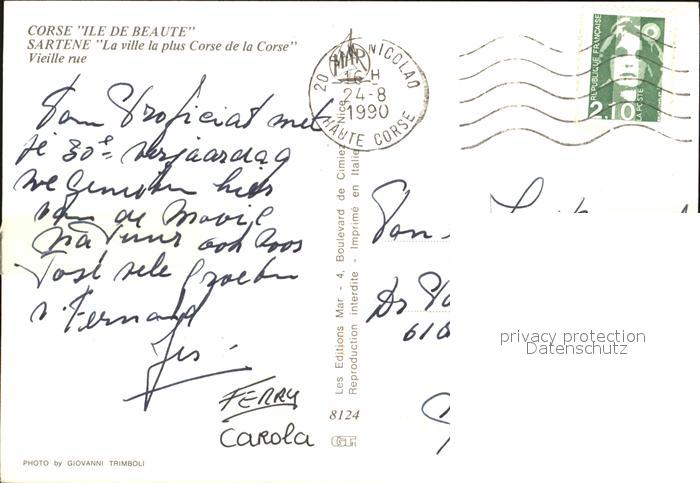 CORSE "ILE DE BEAUTE"
SARTENE "La ville la plus Corse de la Corse"
Vieille rue
20 NICOLAO
16 H
24-8
1990
HAUTE CORSE
REPUBLIQUE FRANÇAISE
2,10
LA POSTE
Tom Proficiat met
je 30e verjaardag
we genieten hier
van de mooie
natuur ook
vele groeten
v. Fernand
FERRY
Carola
Les Editions Mar - 4, Boulevard de Cimiez - Nice
Reproduction interdite - Imprimé en Italie
8124
Tom
61
privacy protection
Datenschutz
PHOTO by GIOVANNI TRIMBOLI